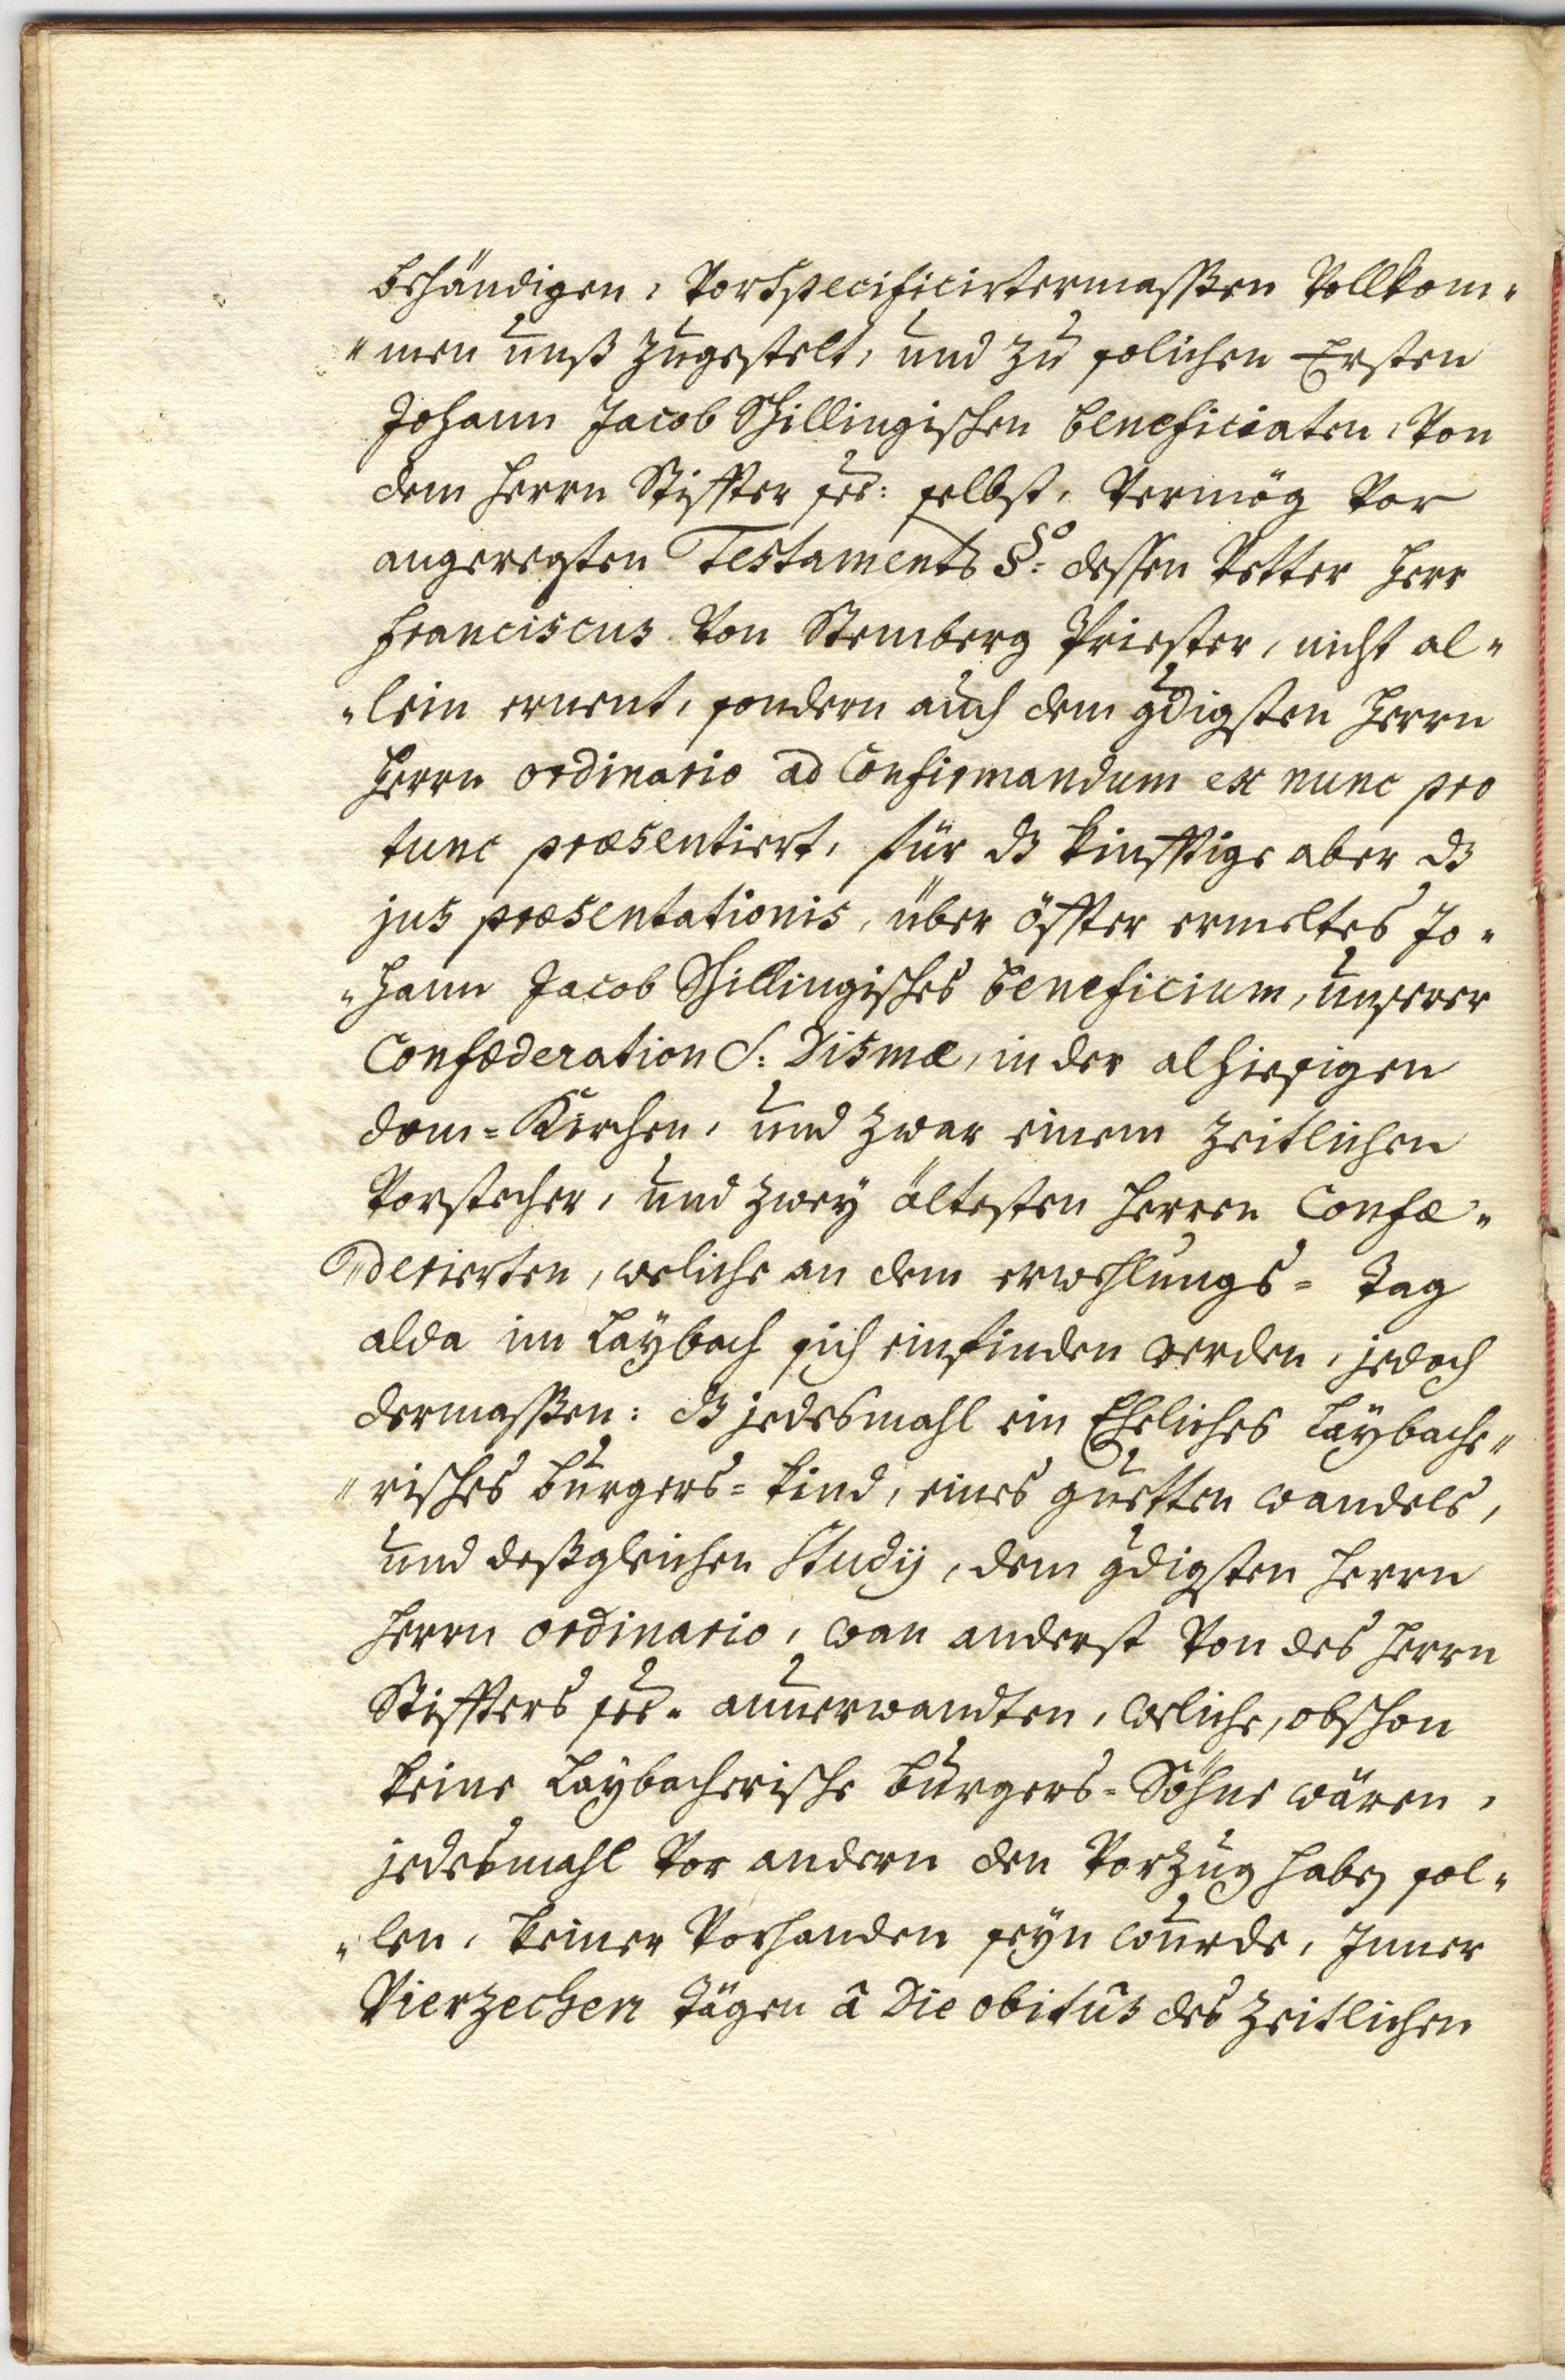 behändigen, Vorspecificirtermassen Vollkom„
„men unß zugestelt, und zu solichen Ersten
Johann Jacob Schillingischen beneficiaten, Von
dem Herrn Stiffter see: selbst, Vermög Vor
angeregten Testaments §o: dessen Vetter Herr
Franciscus Von Stemberg Priester, nicht al„
„lein ernent, sondern auch dem gdigsten Herrn
Herrn ordinario ad Confirmandum ex nunc pro
tunc præsentiert, für dz kinfftige aber dz
jus præsentationis, über öffter ermeltes Jo„
„hann Jacob Schillingisches beneficium, unserer
Confæderation S: Dismæ, in der alhiesigen
dom=Kirchen, und zwar einem zeitlichen
Vorstecher, und zwey ältesten Herren Confæ„
„derierten, weliche an dem erwehlungs=Tag
alda im Laybach sich einfinden werden, jedoch
dermassen: dz jedesmahl ein Eheliches Laybache„
„risches burgers=kind, eines guetten wandels,
und deßgleichen Studij, dem gdigsten Herrn
Herrn ordinario, wan anderst Von des Herrn
Stiffters see„ anverwandten, weliche, obschon
keine Laybacherische burgers=Söhne wären,
jedesmahl Vor andern den Vorzug haben sol„
„len, keiner Vorhanden seyn wurde, Inner
Vierzechen Tägen â Die obitûs des zeitlichen